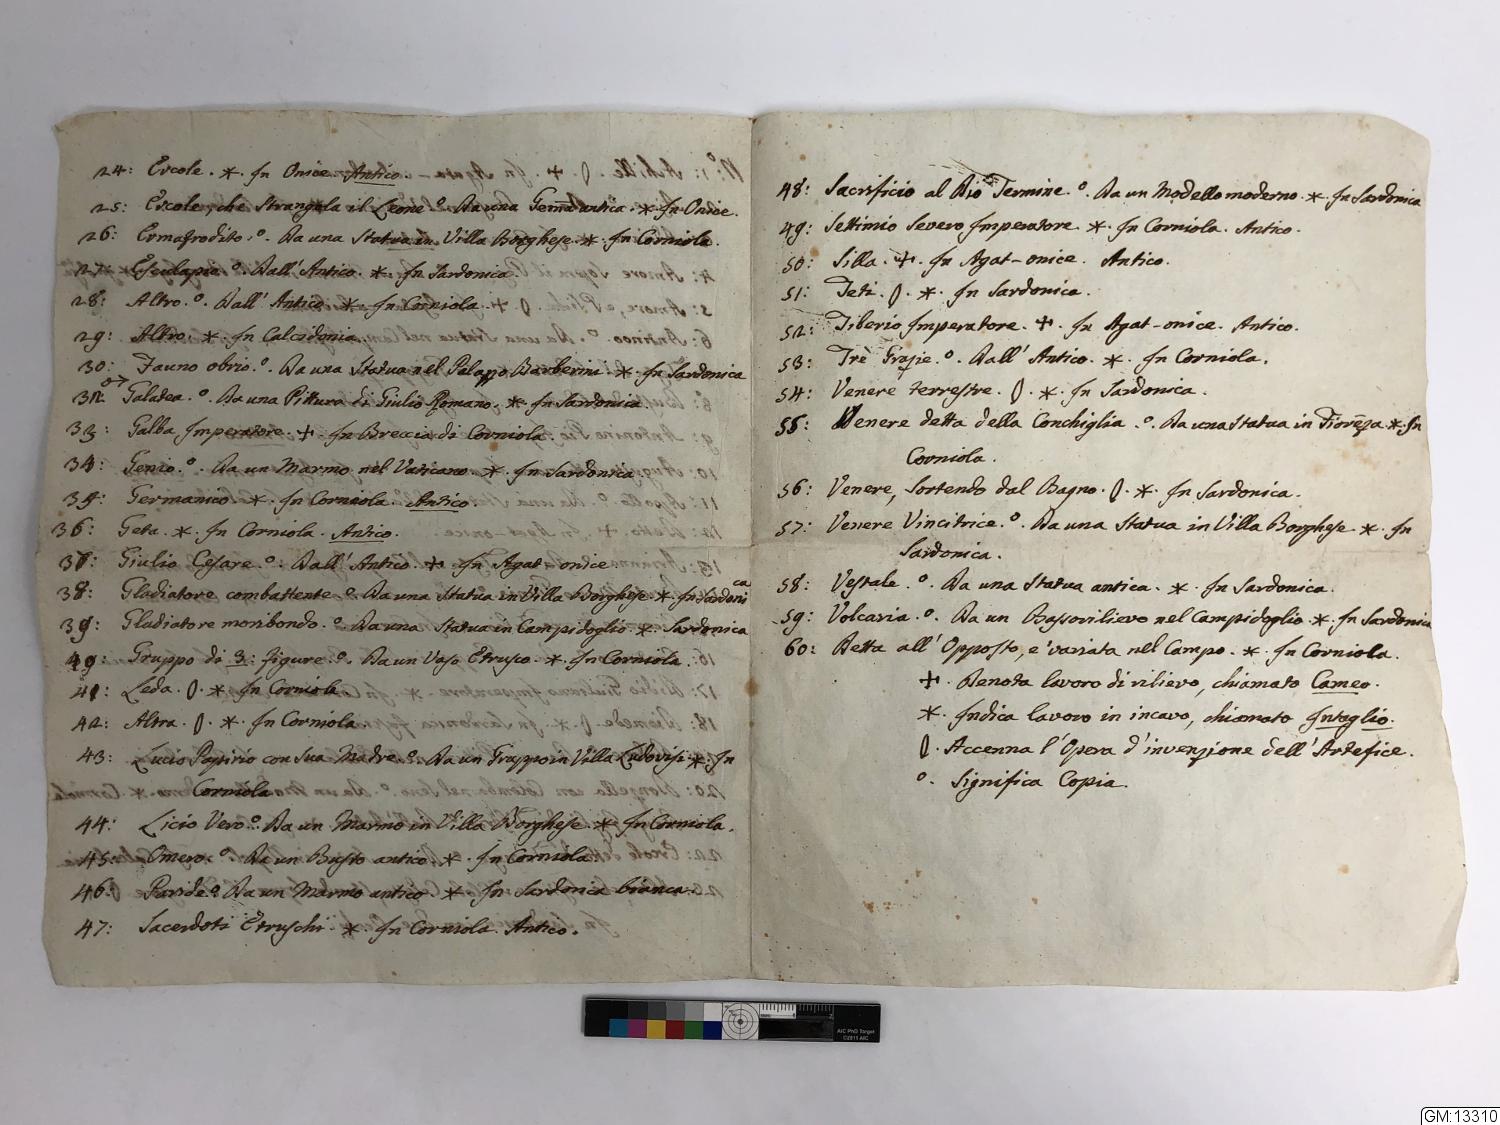 24: Ercole. ⚹. In Onice Antico.
25: Ercole, che Strangola il Leone º. Da una Gemma antica ⚹. In Onice.
26: Ermafrodito. º. Da una Statua in Villa Borghese. ⚹. In Corniola.
27: Esculapio. º. Dall' Antico. ⚹. In Sardonica
28: Altro. º. Dall' Antico. ⚹. In Corniola.
29: Altro. ⚹. In Calcidonia.
30: Fauno obrio. º. Da una Statua nel Palazzo Barberini. ⚹. In Sardonica
Galatea. º. Da una Pittura di Giulio Romano. ⚹. In Sardonica
33: Galba Imperatore. ✢. In Breccia di Corniola.
34: Genio. º. Da un Marmo nel Vaticano. ⚹. In Sardonica
35: Germanico. ⚹. In Corniola. Antico.
36: Geta. ⚹. In Corniola. Antico.
37: Giulio Cesare. º. Dall' Antico. ✢. In Agat-onice
38: Gladiatore combattente º. Da una Statua in Villa Borghese ⚹. In Sardonica
39: Gladiatore moribondo. º. Da una Statua in Campidoglio. ⚹. Sardonica
40: Gruppo di 3: figure. º. Da un Vaso Etrusco. ⚹. In Corniola.
41: Leda. (). ⚹. In Corniola
42: Altra. (). ⚹. In Corniola
43: Lucio Papirio con sua Madre. º. Da un Gruppo in Villa Ludovisi. ⚹. In
Corniola
44: Licio Vero. º. Da un Marmo in Villa Borghese. ⚹. In Corniola.
45: Omero. º. Da un Busto antico. ⚹. In Corniola
46: Paride. º. Da un Marmo antico. ⚹. In Sardonica bianca.
47: Sacerdoti Etruschi. ⚹. In Corniola. Antico.
48: Sacrificio al Dio Termine. º. Da un Modello moderno. ⚹. In Sardonica
49: Settimio Severo Imperatore. ⚹. In Corniola. Antico.
50: Silla. ✢. In Agat-onice. Antico.
51: Teti. (). ⚹. In Sardonica.
52: Tiberio Imperatore. ✢. In Agat-onice. Antico.
53: Trè Grazie. º. Dall' Antico. ⚹. In Corniola.
54: Venere terrestre. (). ⚹. In Sardonica.
55: Venere detta della Conchiglia. º. Da una Statua in Fiorenza ⚹. In
Corniola.
56: Venere, Sortendo dal Bagno. (). ⚹. In Sardonica.
57: Venere Vincitrice. º. Da una Statua in Villa Borghese ⚹. In
Sardonica.
58: Vestale. º. Da una Statua antica. ⚹. In Sardonica.
59: Volcaria. º. Da un Bassorilievo nel Campidoglio. ⚹. In Sardonica
60: Detta all' Opposto, e' variata nel Campo. ⚹. In Corniola.
✢. Denota lavoro di rilievo, chiamato Cameo.
⚹. Indica lavoro in incavo, chiamato Intaglio.
(). Accenna l'Opera d'invenzione dell'Artefice.
º. Significa Copia.
AIC PhD Target
©2011 AIC
GM:13310